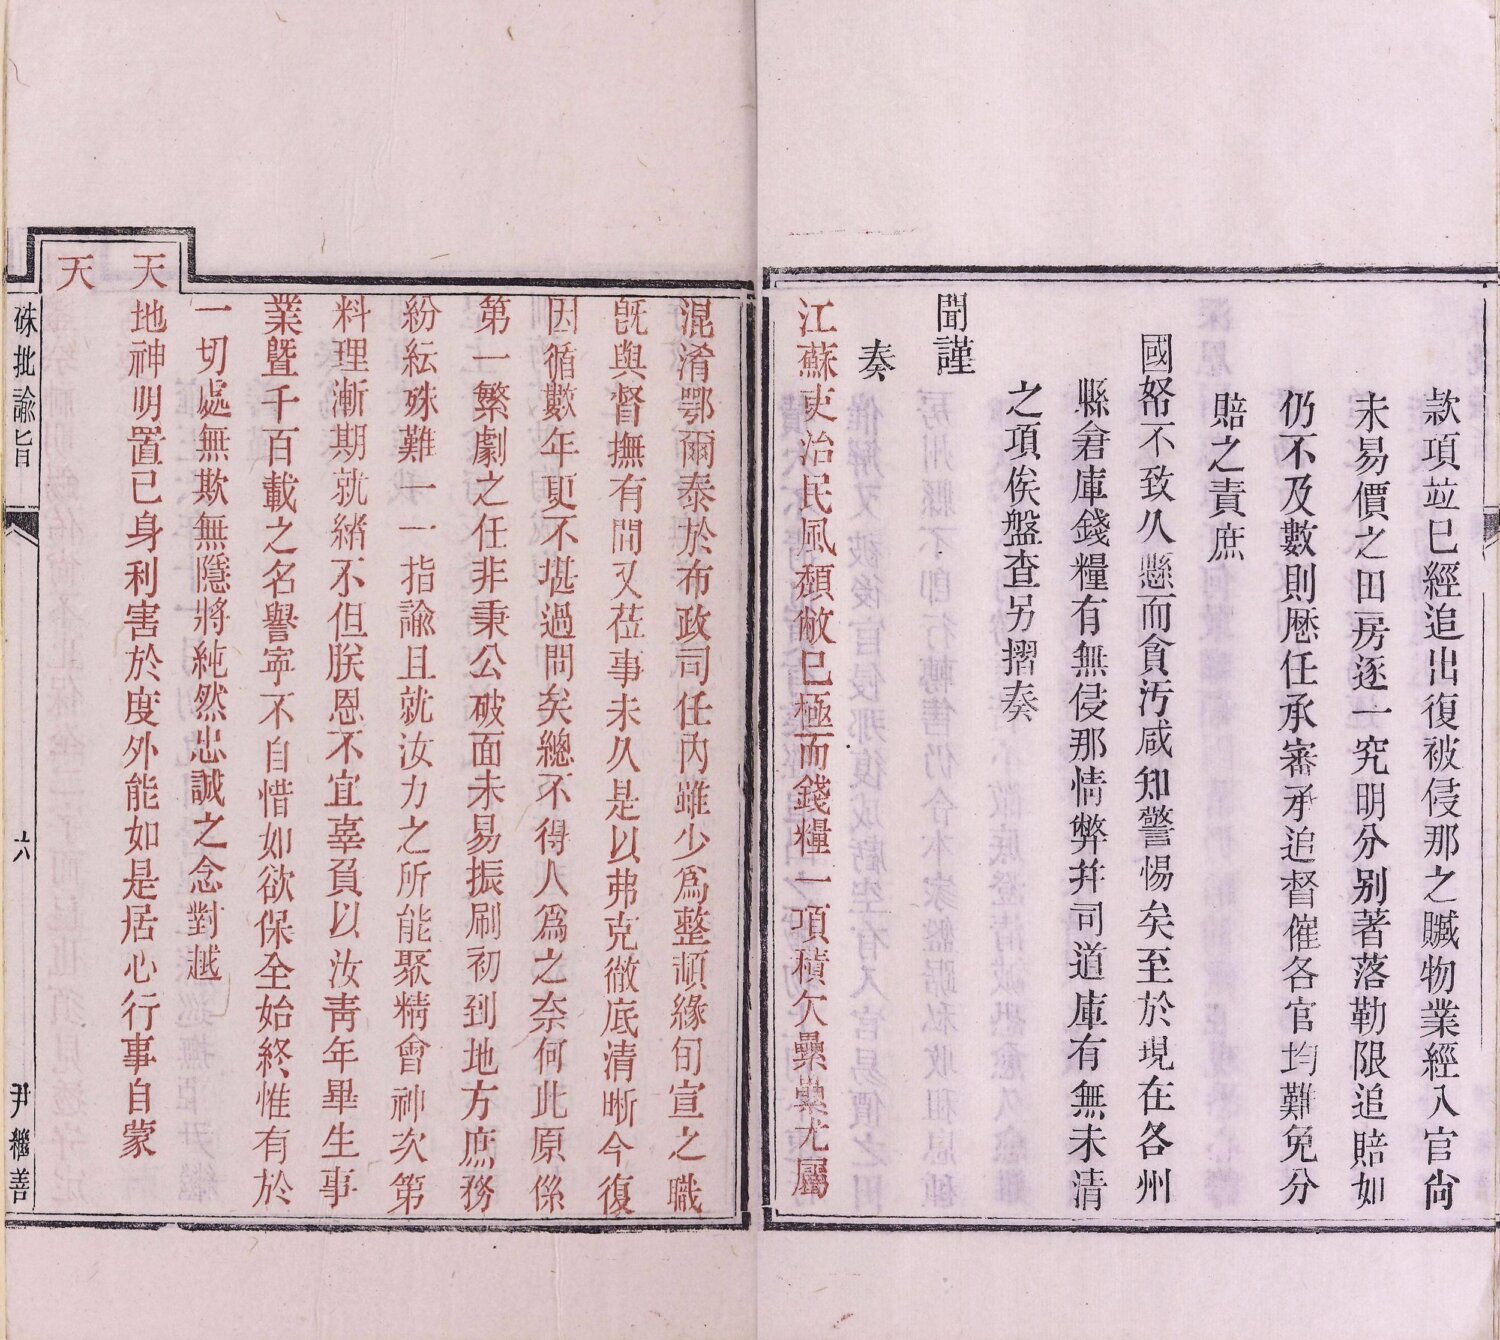 款項並已經追出復被侵那之贓物業經入官尙
未易價之田房逐一究明分別著落勒限追賠如
仍不及數則歷任承審承追督催各官均難免分
賠之責庶
國帑不致久懸而貪汚咸知警惕矣至於現在各州
縣倉庫錢糧有無侵那情弊幷司道庫有無未清
之項俟盤查另摺奏
聞謹
奏
江蘇吏治民風頹敝已極而錢糧一項積欠纍纍尤屬
混淆鄂爾泰於布政司任內雖少爲整頓緣旬宣之職
旣與督撫有間又莅事未久是以弗克徹底清晰今復
因循數年更不堪過問矣總不得人爲之奈何此原係
第一繁劇之任非秉公破面未易振刷初到地方庶務
紛紜殊難一一指諭且就汝力之所能聚精會神次第
料理漸期就緒不但朕恩不宜辜負以汝靑年畢生事
業暨千百載之名譽寧不自惜如欲保全始終惟有於
一切處無欺無隱將純然忠誠之念對越
天地神明置已身利害於度外能如是居心行事自蒙
天
硃批諭旨
六
尹繼善